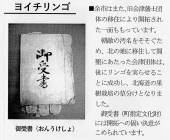 ヨイチリンゴ
御受書
御受書（おんうけしょ）
■余市はまた、旧会津藩士団
の移住により開拓され
た一面ももっています。
朝敵の汚名をそそぐた
め、北の地に移住して開
墾にあたった会津団体は、
後にリンゴを実らせるこ
とに成功し、北海道の果
樹栽培の草分けとなりま
した。
御受書（町指定文化財）
には開拓への固い決意が
こめられています。